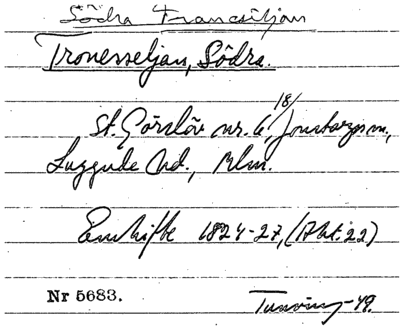 Södra Francsiljan
Tronesseljan, Södra.
18/
St. Görslöv nr. 6, Jonstorps sn.,
Luggude hd., Mlm.
Enskifte 1824-27, (Akt: 22)
Nr 5683.
Tuneving -49.